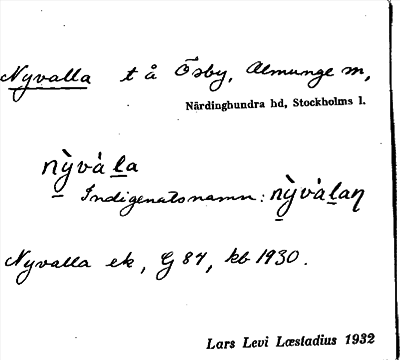 Nyvalla t å Ösby, Almunge sn,
Närdinghundra hd, Stockholms l.
nỳvàl̲a
Indigenatsnamn: nỳvàl̲aṇ
Nyvalla ek, G 84, kb 1930.
Lars Levi Læstadius 1932